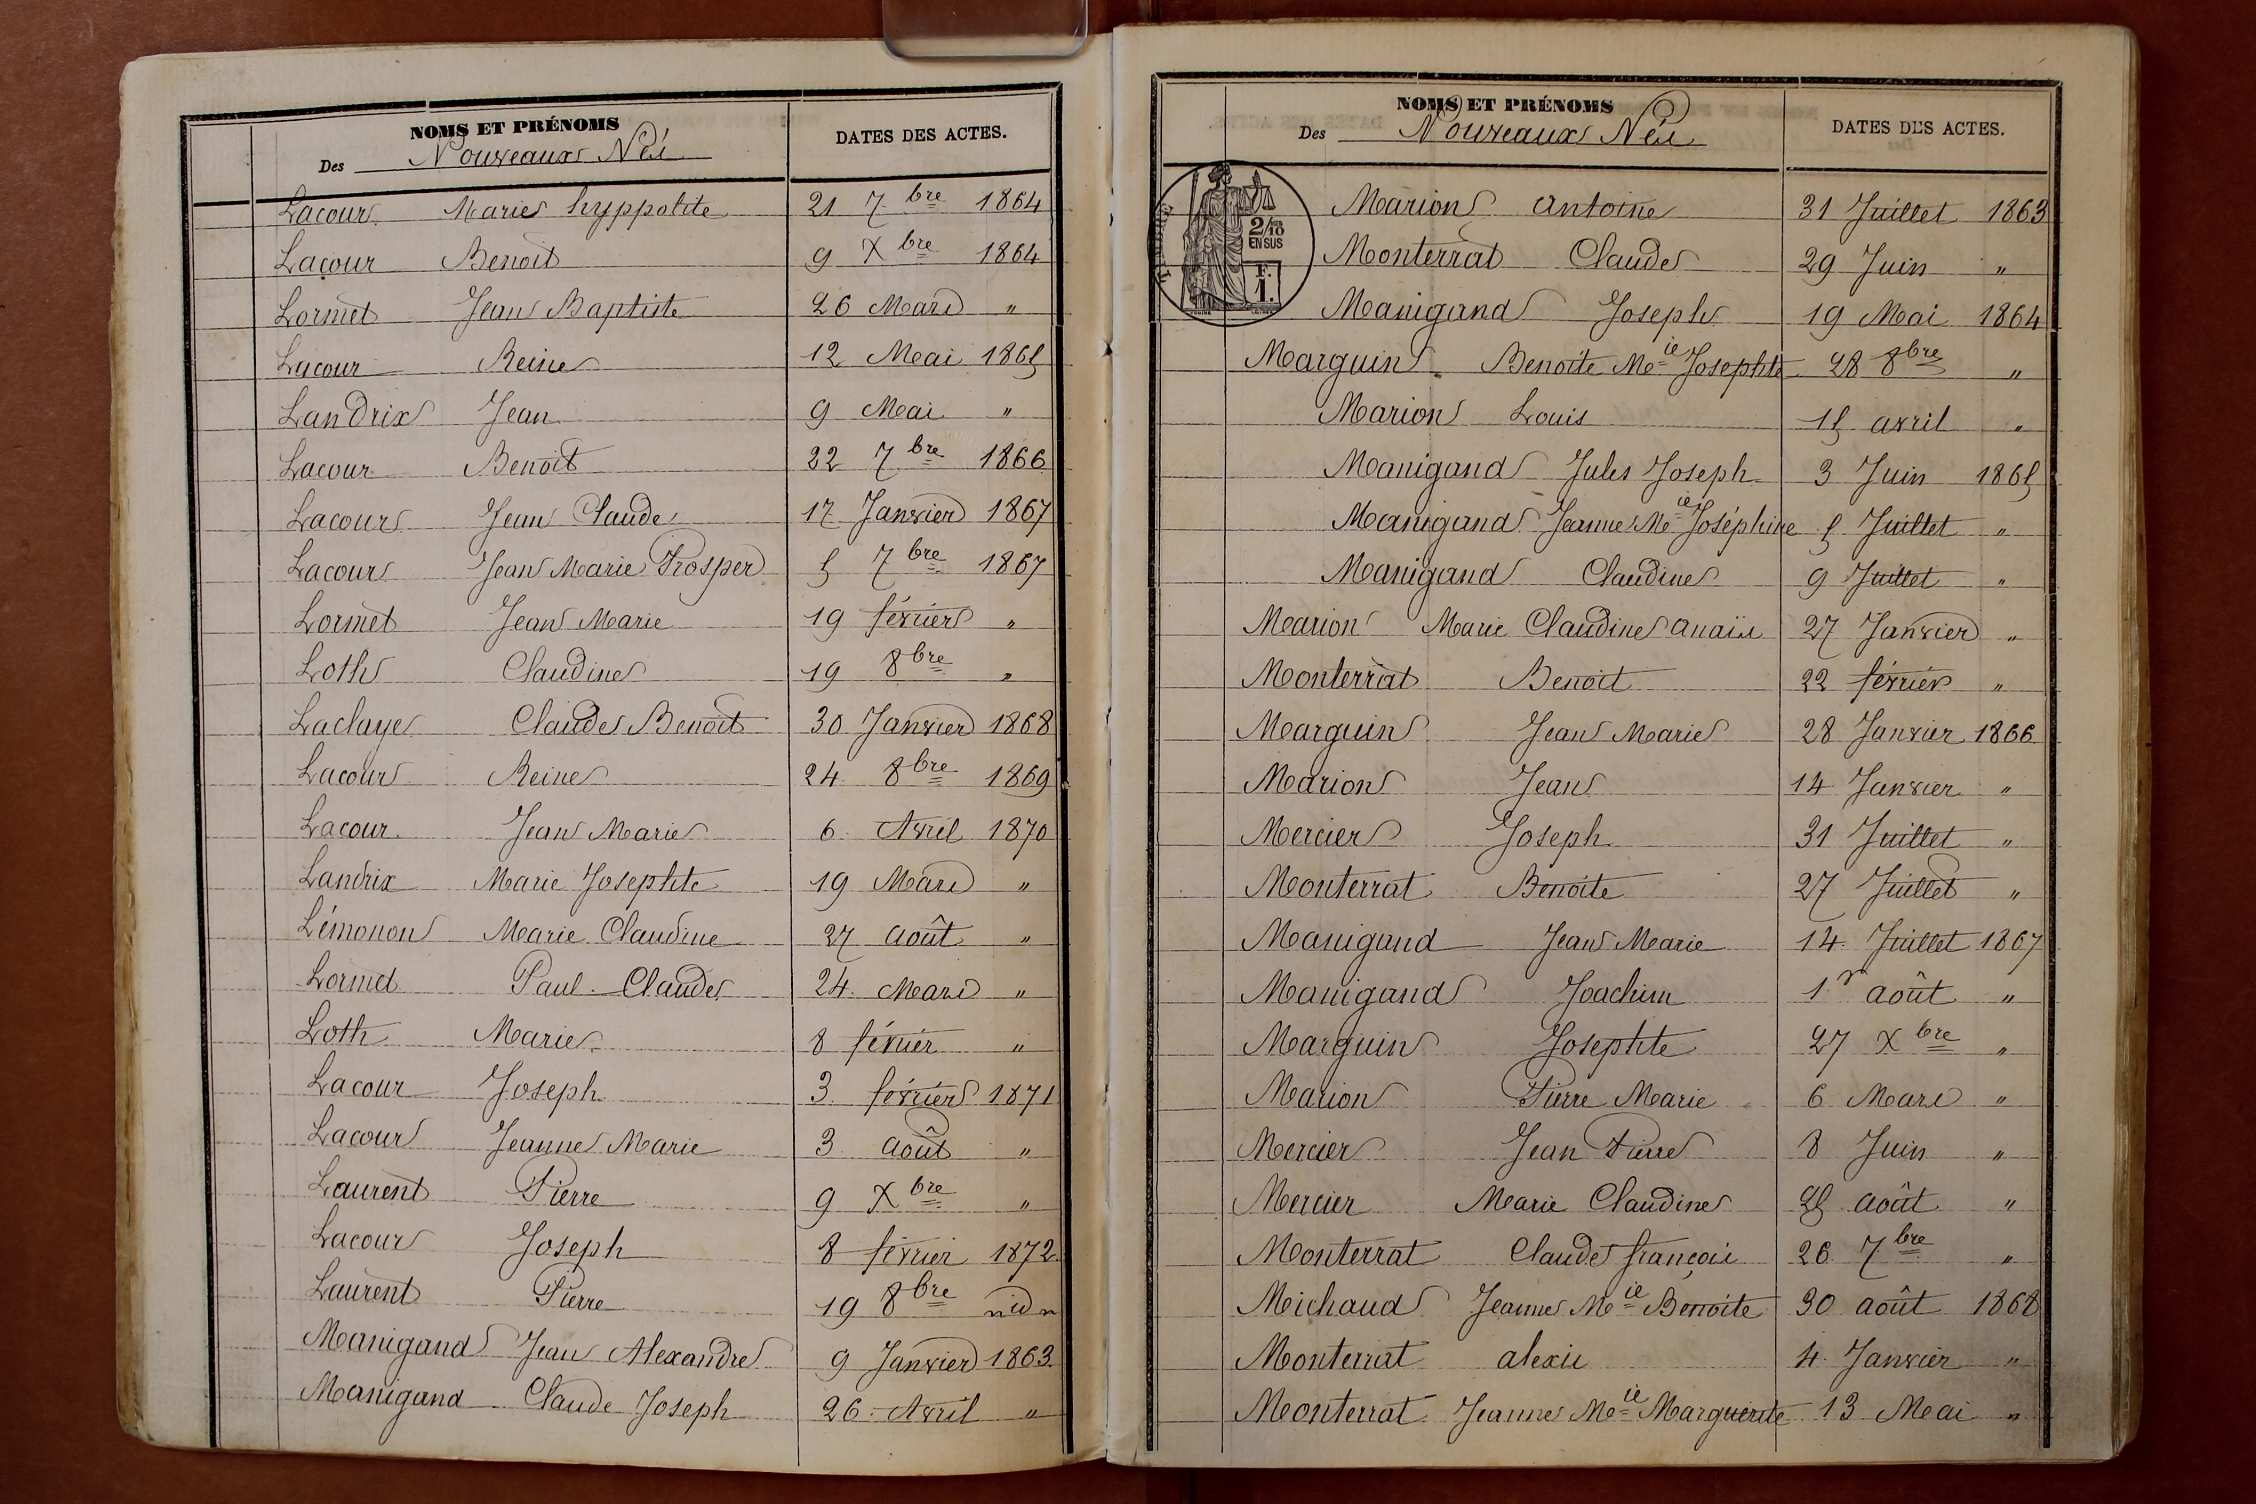 NOMS ET PRÉNOMS
Des Nouveaux Nés
DATES DES ACTES.
Lacour Marie hyppolite 21 7bre 1864
Lacour Benoit 9 Xbre 1864
Lormet Jean Baptiste 26 Mars "
Lacour Reine 12 Mai 1865
Landrix Jean 9 Mai "
Lacour Benoit 22 7bre 1866
Lacour Jean Claude 17 Janvier 1867
Lacour Jean Marie Prosper 5 7bre 1867
Lormet Jean Marie 19 février "
Loth Claudine 19 8bre "
Laclaye Claude Benoit 30 Janvier 1868
Lacour Reine 24 8bre 1869
Lacour Jean Marie 6 Avril 1870
Landrix Marie Josephte 19 Mars "
Lémonon Marie Claudine 27 août "
Lormet Paul Claude 24 Mars "
Loth Marie 8 février "
Lacour Joseph 3 février 1871
Lacour Jeanne Marie 3 août "
Laurent Pierre 9 Xbre "
Lacour Joseph 8 février 1872
Laurent Pierre 19 8bre "id"
Manigand Jean Alexandre 9 Janvier 1863
Manigand Claude Joseph 26 Avril "
NOMS ET PRÉNOMS
Des Nouveaux Nés
DATES DES ACTES.
2/10
EN SUS
F.
1.
Marion Antoine 31 Juillet 1863
Monterrat Claude 29 Juin "
Manigand Joseph 19 Mai 1864
Marguin Benoite Mie Josephte 28 8bre "
Marion Louis 15 avril "
Manigand Jules Joseph 3 Juin 1865
Manigand Jeanne Mie Joséphine 5 Juillet "
Manigand Claudine 9 Juillet "
Marion Marie Claudine anaïs 27 Janvier "
Monterrat Benoit 22 février "
Marguin Jean Marie 28 Janvier 1866
Marion Jean 14 Janvier "
Mercier Joseph 31 Juillet "
Monterrat Benoite 27 Juillet "
Manigand Jean Marie 14 Juillet 1867
Manigand Joachim 1r août "
Marguin Josephte 27 Xbre "
Marion Pierre Marie 6 Mars "
Mercier Jean Pierre 8 Juin "
Mercier Marie Claudine 25 août "
Monterrat Claude françois 26 7bre "
Michaud Jeanne Mie Benoite 30 août 1868
Monterrat alexis 4 Janvier "
Monterrat Jeanne Mie Marguerite 13 Mai "